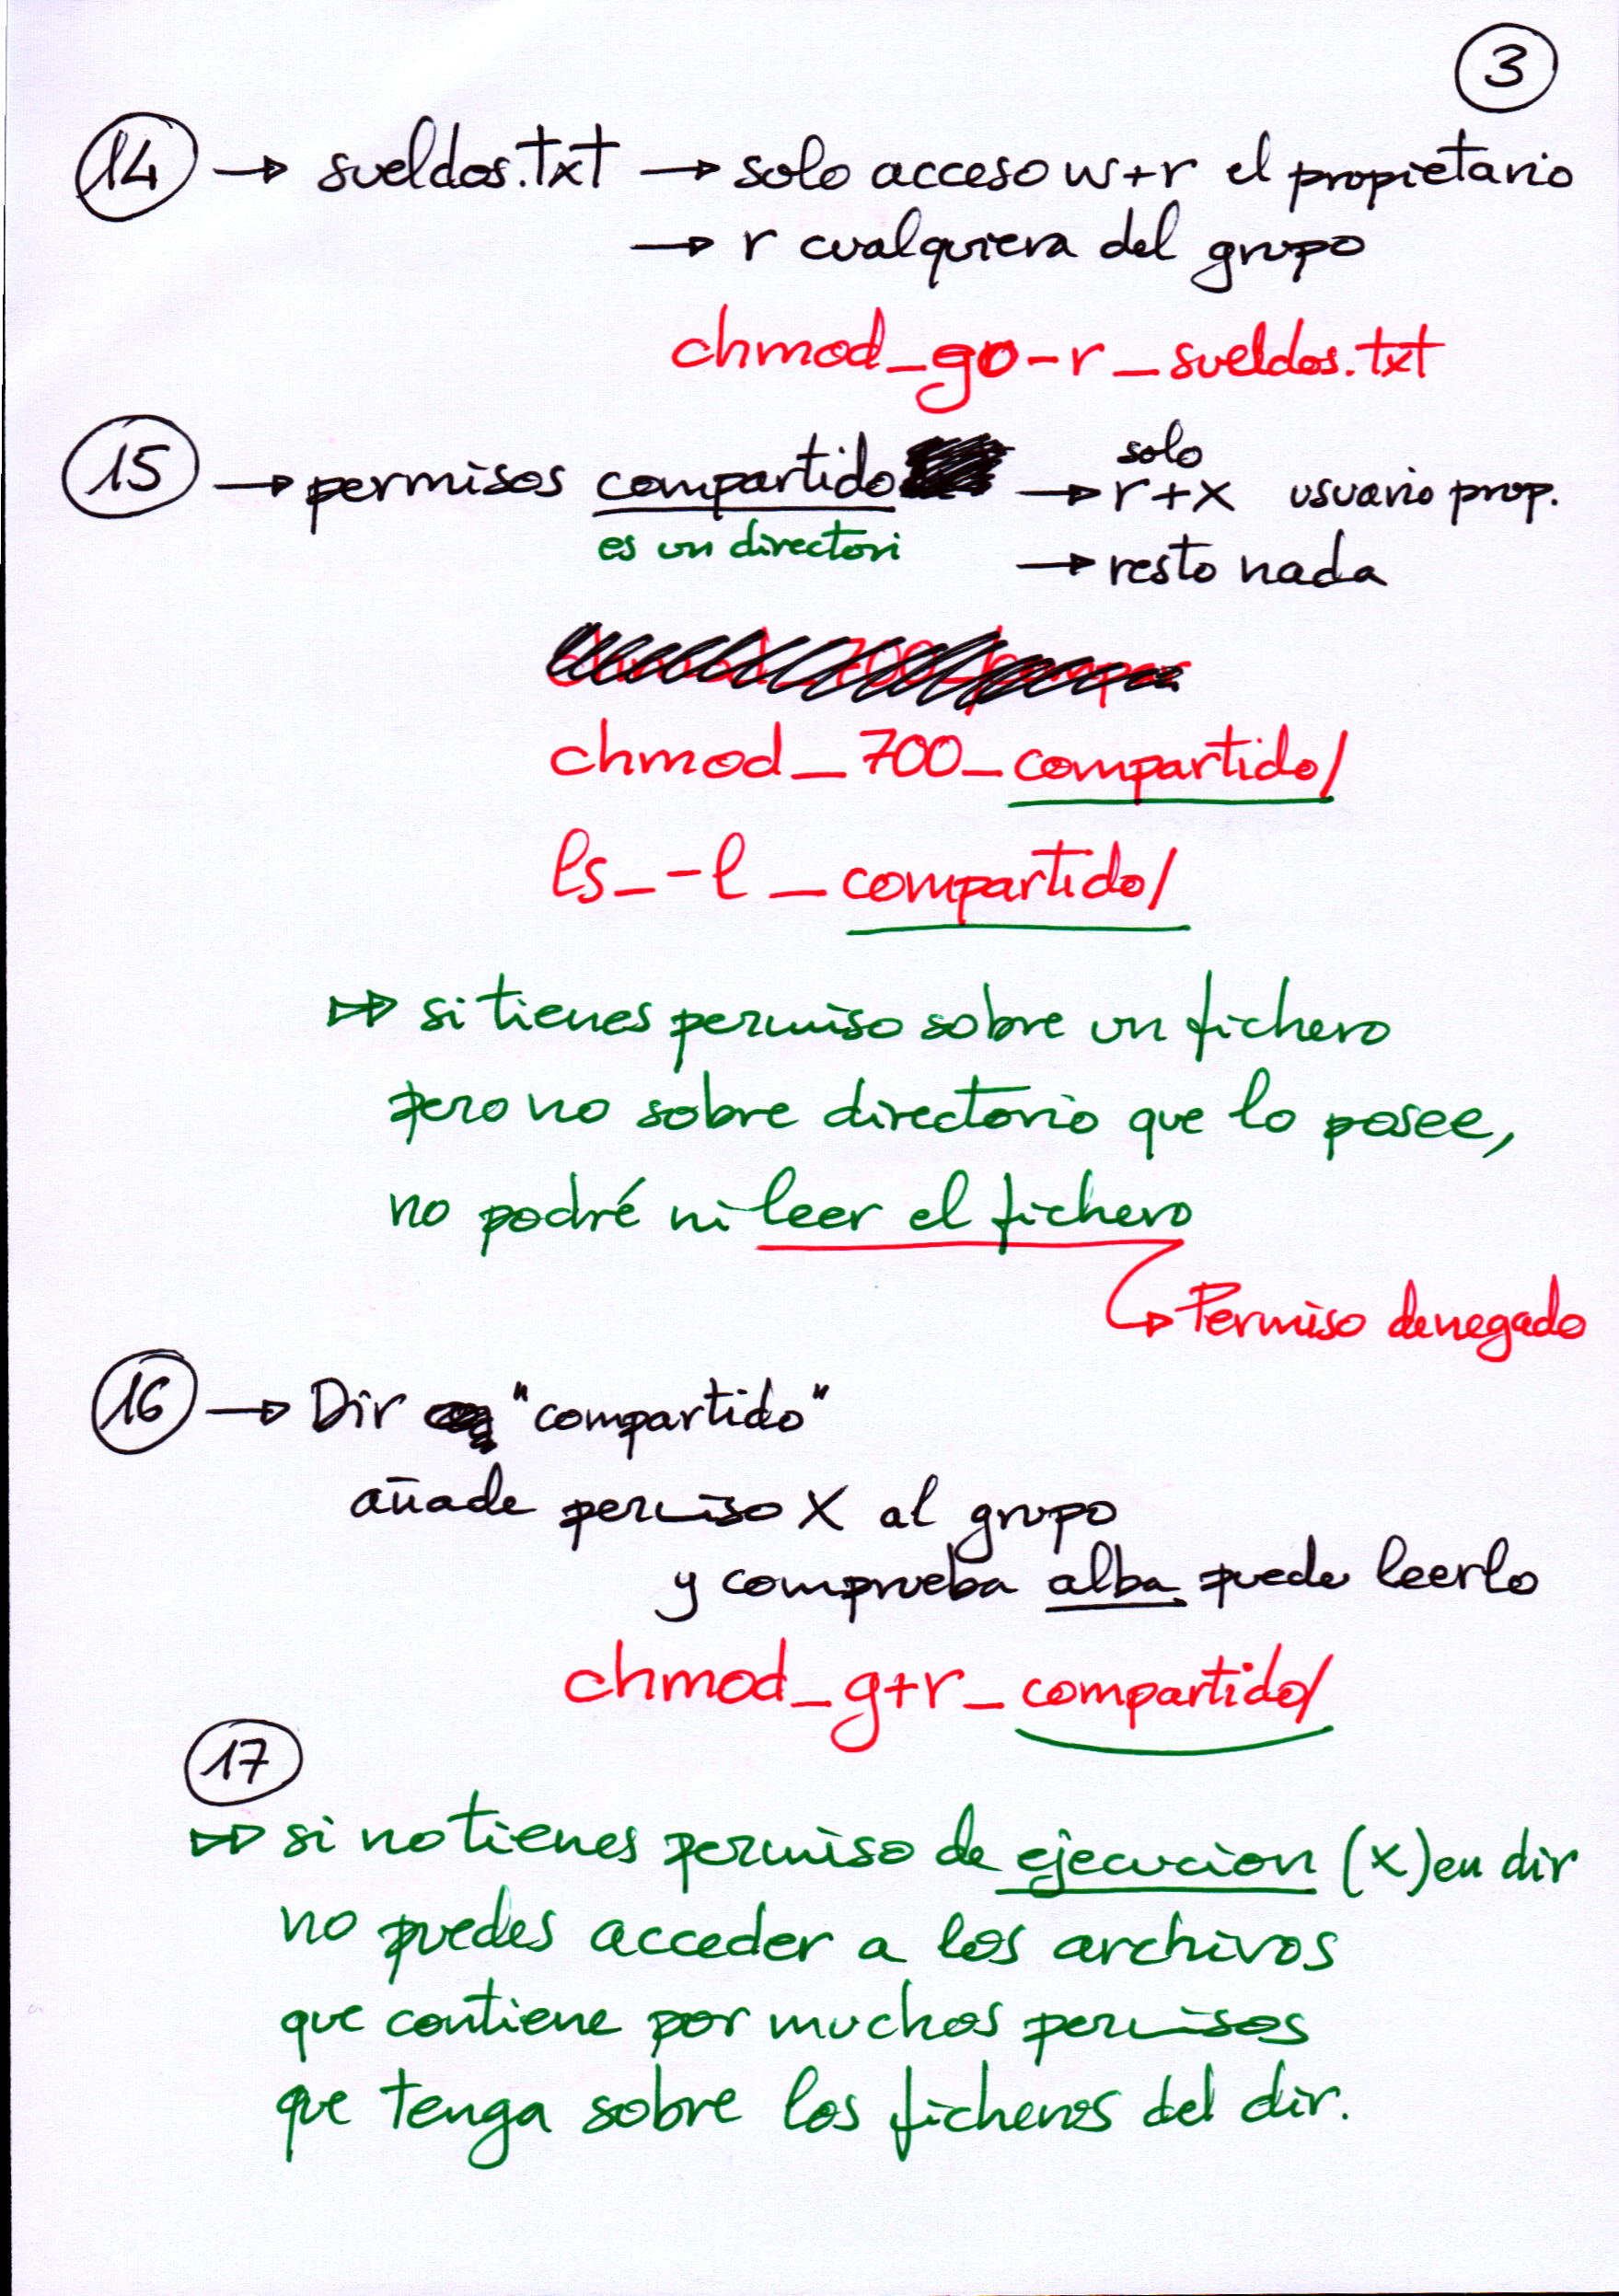 3
14 → sueldos.txt → solo acceso w+r el propietario
→ r cualquiera del grupo
chmod_go-r_sueldos.txt
15 → permisos compartido → solo r+x usuario prop.
es un directori
→ resto nada
chmod_700_compartido/
ls_-l_compartido/
▷▷ si tienes permiso sobre un fichero
pero no sobre directorio que lo posee,
no podré ni leer el fichero
↳ Permiso denegado
16 → Dir "compartido"
añade permiso X al grupo
y comprueba alba puede leerlo
chmod_g+r_compartido/
17
▷▷ si no tienes permiso de ejecucion (x) en dir
no puedes acceder a los archivos
que contiene por muchos permisos
que tenga sobre los ficheros del dir.